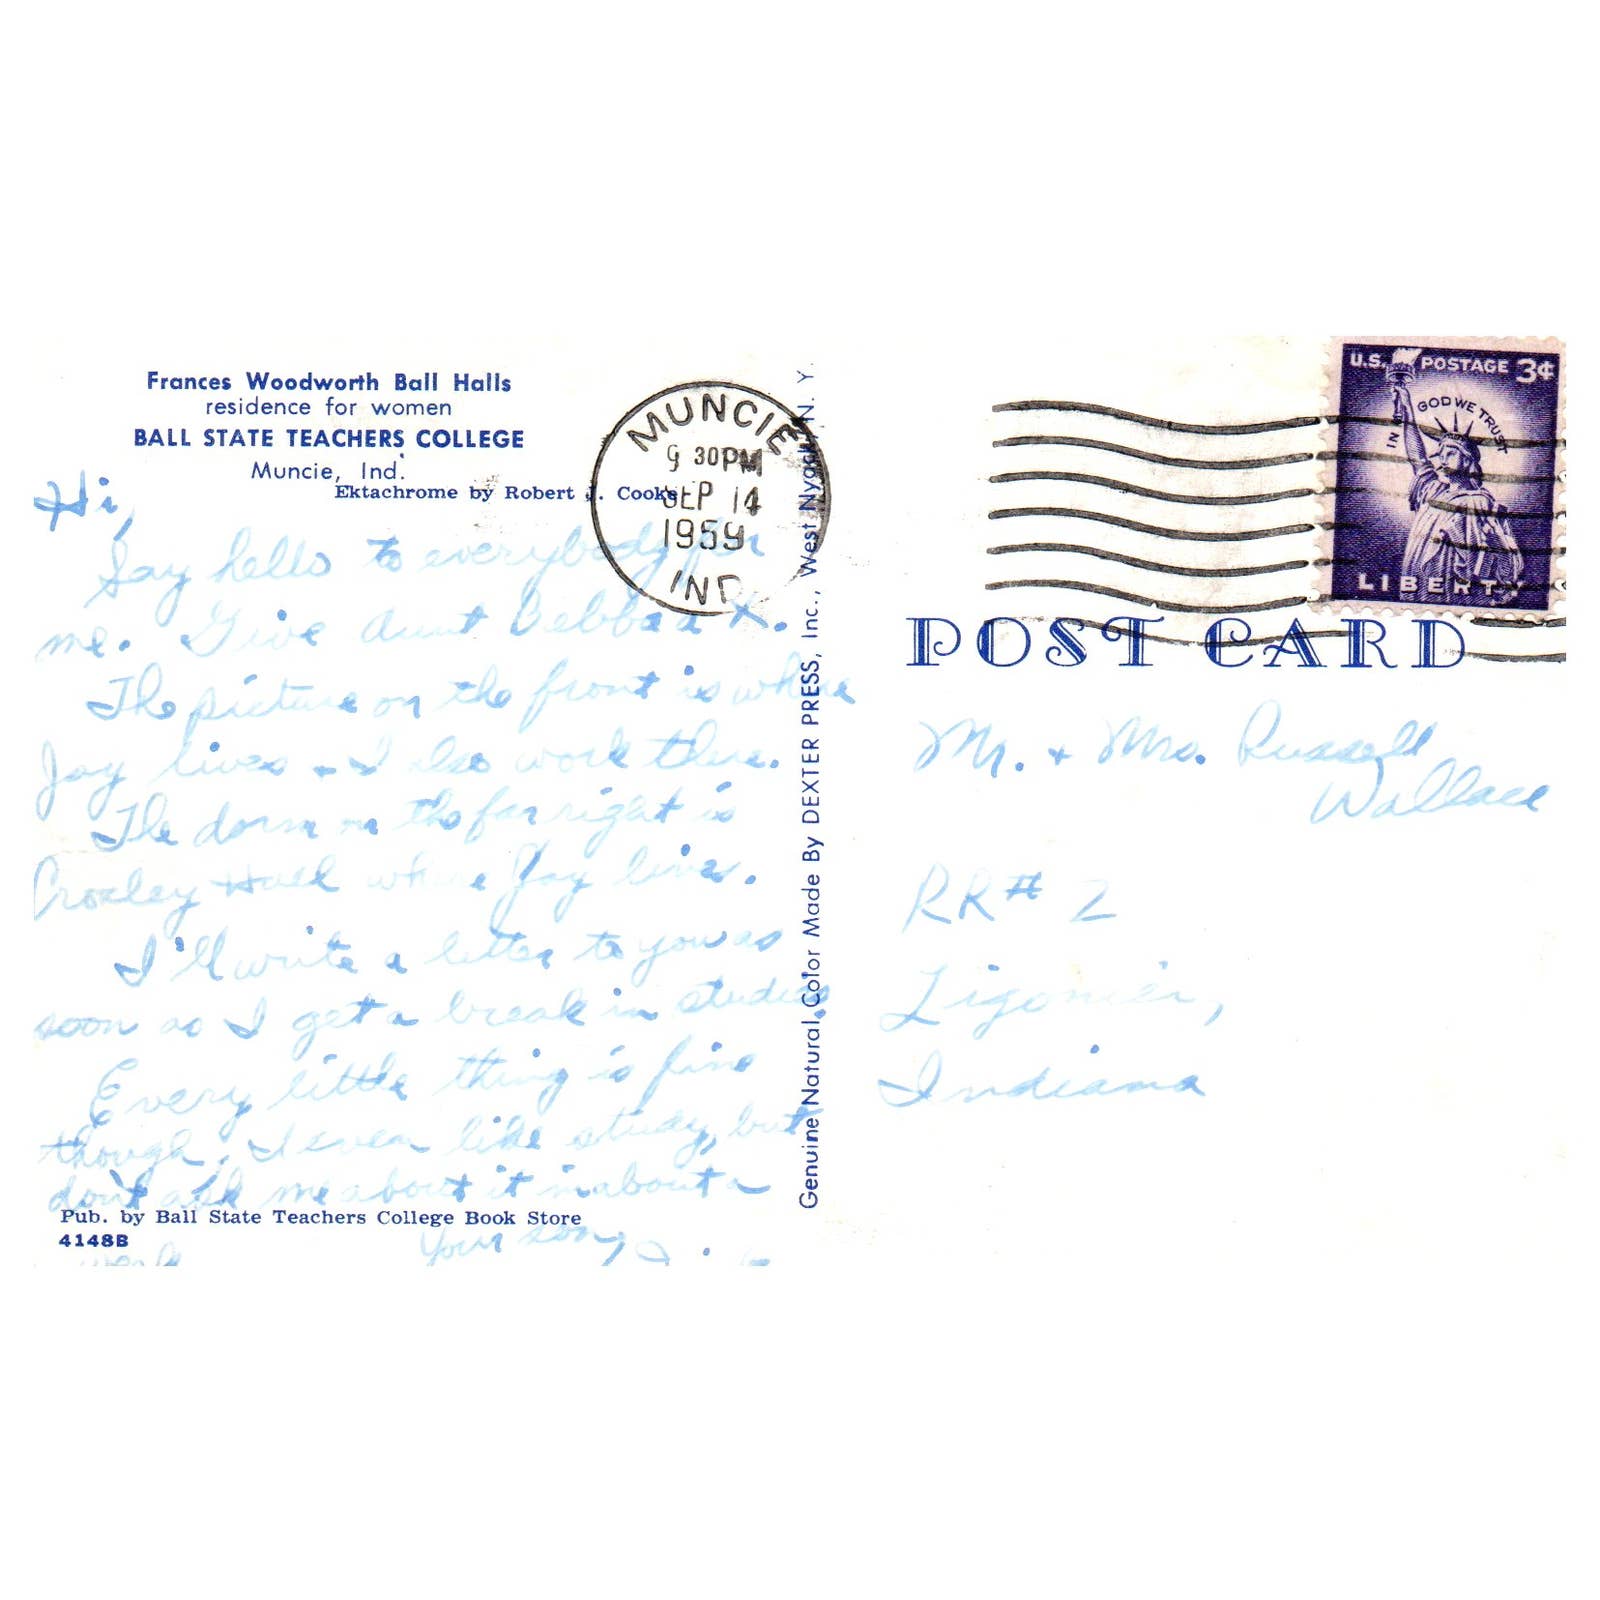 Frances Woodworth Ball Halls
residence for women
BALL STATE TEACHERS COLLEGE
Muncie, Ind.
Ektachrome by Robert J. Cooke
Hi,
Say hello to everybody for
me. Give Aunt a K.
The picture on the front is where
Jay lives + I also work there.
The dorm on the far right is
Crosley Hall where Jay lives.
I'll write a letter to you as
soon as I get a break in studies
Every little thing is fine
though. I even like study, but
don't ask me about it in about a
Pub. by Ball State Teachers College Book Store
4148B
Your son,
Genuine Natural Color Made By DEXTER PRESS, Inc., West Nyack, N. Y.
MUNCIE
9 30 PM
SEP 14
1959
IND.
U.S. POSTAGE 3¢
IN GOD WE TRUST
LIBERTY
POST CARD
Mr. + Mrs. Russell
Wallace
RR# 2
Ligonier,
Indiana